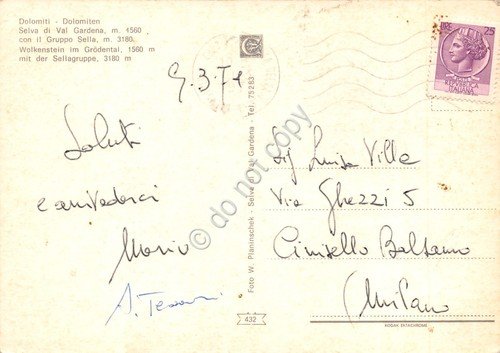 Dolomiti - Dolomiten
Selva di Val Gardena, m. 1560
con il Gruppo Sella, m. 3180
Wolkenstein im Grödental, 1560 m
mit der Sellagruppe, 3180 m
9.3.71
Saluti
e arrivederci
Mario
Foto W. Planinschek - Selva Val Gardena - Tel. 75283
432
25
Sig Luisa Villa
Via Ghezzi 5
Cinisello Balsamo
(Milano
KODAK EKTACHROME
do not copy